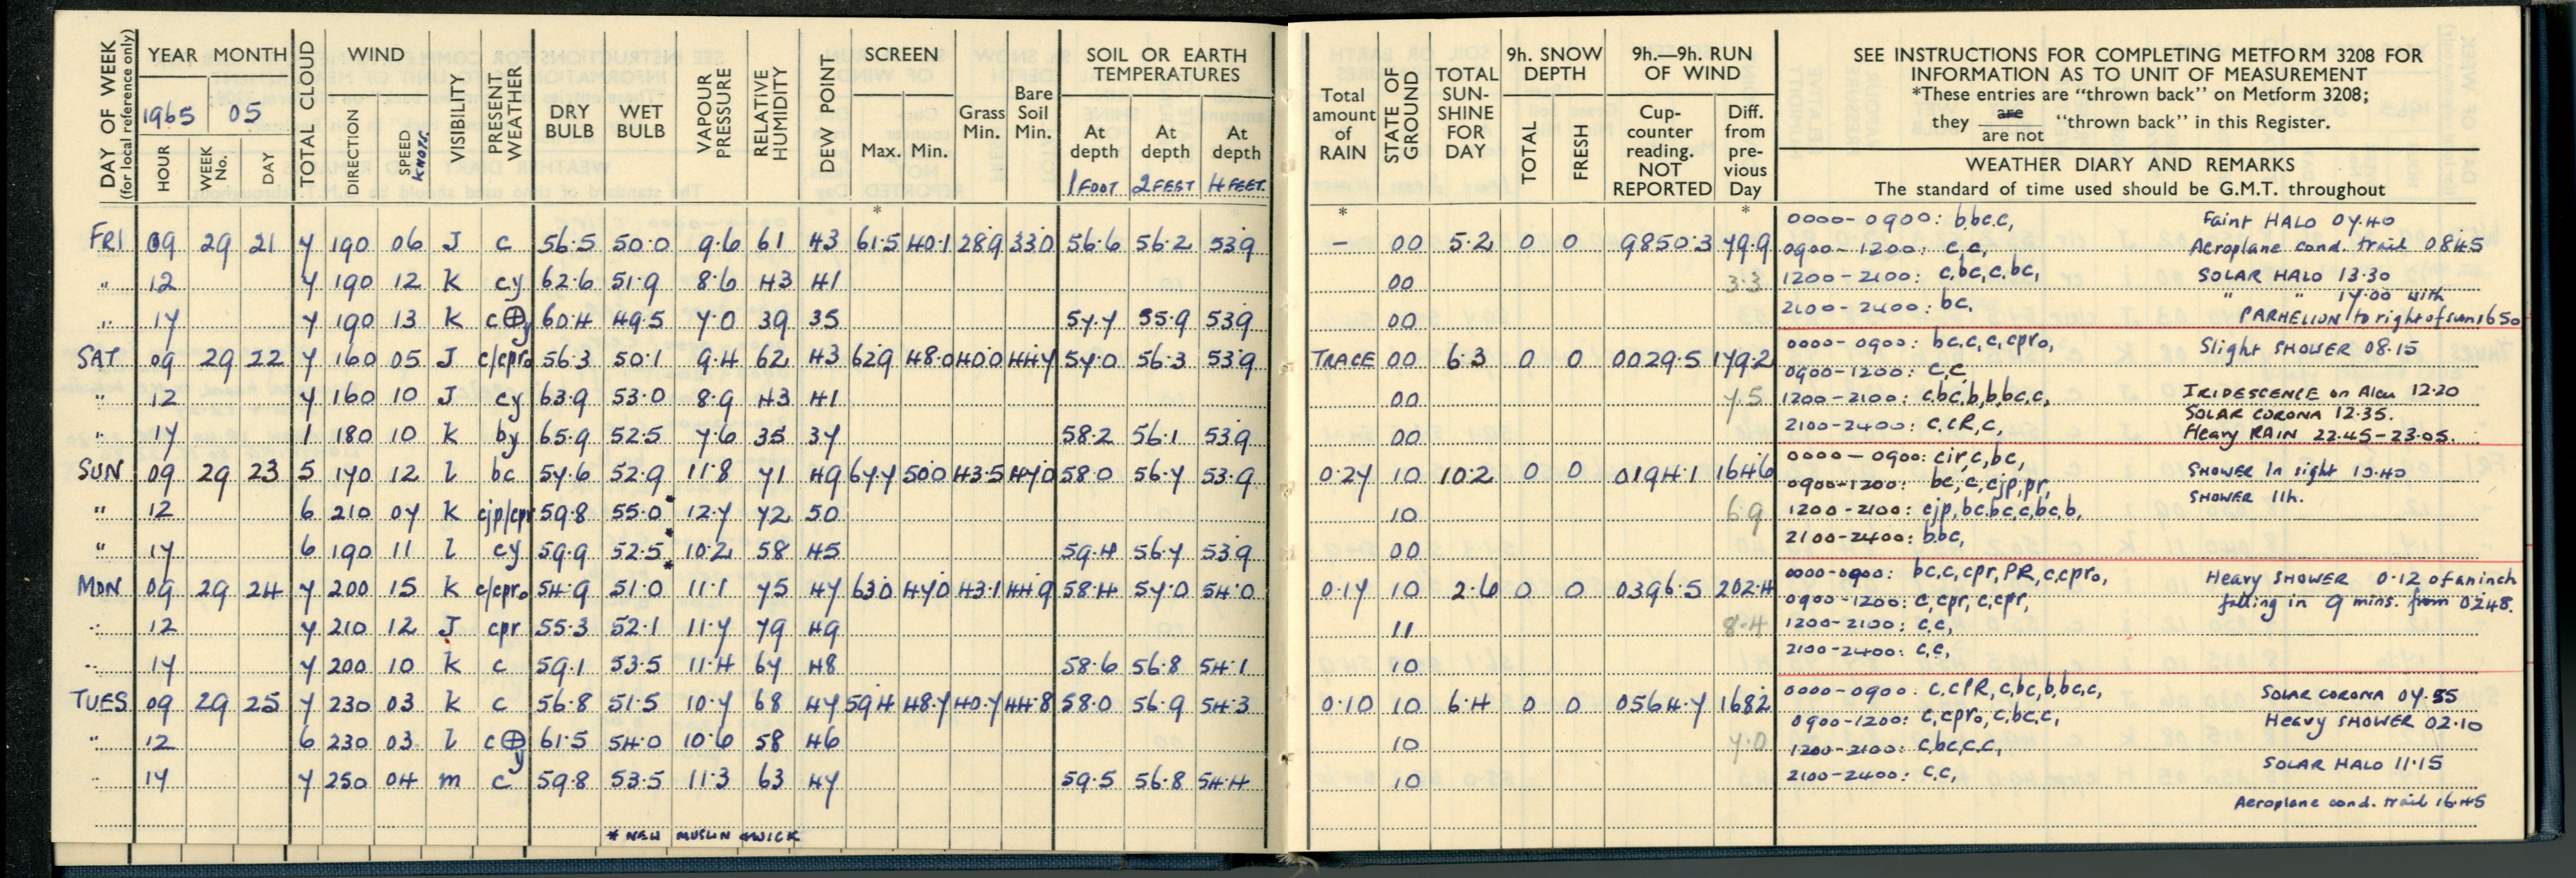 DAY OF WEEK
(for local reference only)
YEAR MONTH
1965 05
HOUR
WEEK No.
DAY
TOTAL CLOUD
WIND
DIRECTION
SPEED KNOTS
VISIBILITY
PRESENT WEATHER
DRY BULB
WET BULB
VAPOUR PRESSURE
RELATIVE HUMIDITY
DEW POINT
SCREEN
Max. Min.
Grass Min.
Bare Soil Min.
SOIL OR EARTH TEMPERATURES
At depth 1 FOOT
At depth 2 FEET
At depth 4 FEET
*
FRI 09 29 21 7 190 06 J c 56.5 50.0 9.6 61 43 61.5 40.1 28.9 33.0 56.6 56.2 53.9
" 12 7 190 12 K cy 62.6 51.9 8.6 43 41
" 17 7 190 13 K c⊕y 60.4 49.5 7.0 39 35 57.7 55.9 53.9
SAT 09 29 22 7 160 05 J c/cpro 56.3 50.1 9.4 62 43 62.9 48.0 40.0 44.7 57.0 56.3 53.9
" 12 7 160 10 J cy 63.9 53.0 8.9 43 41
" 17 1 180 10 K by 65.9 52.5 7.6 35 37 58.2 56.1 53.9
SUN 09 29 23 5 170 12 l bc 57.6 52.9 11.8 71 49 67.7 50.0 43.5 47.0 58.0 56.7 53.9
" 12 6 210 07 K cjp/cpr 59.8 55.0* 12.7 72 50
" 17 6 190 11 l cy 59.9 52.5* 10.2 58 45 59.4 56.7 53.9
MON 09 29 24 7 200 15 K c/cpro 54.9 51.0* 11.1 75 47 63.0 47.0 43.1 44.9 58.4 57.0 54.0
" 12 7 210 12 J cpr 55.3 52.1 11.7 79 49
" 17 7 200 10 K c 59.1 53.5 11.4 67 48 58.6 56.8 54.1
TUES 09 29 25 7 230 03 K c 56.8 51.5 10.7 68 47 59.4 48.7 40.7 44.8 58.0 56.9 54.3
" 12 6 230 03 l c⊕y 61.5 54.0 10.6 58 46
" 17 7 250 04 m c 59.8 53.5 11.3 63 47 59.5 56.8 54.4
* NEW MUSLIN & WICK
Total amount of RAIN
STATE OF GROUND
TOTAL SUN-SHINE FOR DAY
9h. SNOW DEPTH
TOTAL
FRESH
9h.—9h. RUN OF WIND
Cup-counter reading. NOT REPORTED
Diff. from pre-vious Day
* *
– 00 5.2 0 0 9850.3 79.9
00 3.3
00
TRACE 00 6.3 0 0 0029.5 179.2
00 7.5
00
0.27 10 10.2 0 0 0194.1 164.6
10 6.9
00
0.17 10 2.6 0 0 0396.5 202.4
11 8.4
10
0.10 10 6.4 0 0 0564.7 168.2
10 7.0
10
SEE INSTRUCTIONS FOR COMPLETING METFORM 3208 FOR
INFORMATION AS TO UNIT OF MEASUREMENT
*These entries are "thrown back" on Metform 3208;
they are / are not "thrown back" in this Register.
WEATHER DIARY AND REMARKS
The standard of time used should be G.M.T. throughout
0000-0900: b,bc,c, Faint HALO 07.40
0900-1200: c,c, Aeroplane cond. trail 0845
1200-2100: c,bc,c,bc, SOLAR HALO 13.30
" " 17.00 with
2100-2400: bc, PARHELION to right of sun 1650
0000-0900: bc,c,c,cpro, Slight SHOWER 08.15
0900-1200: c,c
1200-2100: c,bc,b,b,bc,c, IRIDESCENCE on Alcu 12.20
SOLAR CORONA 12.35.
2100-2400: c,cR,c, Heavy RAIN 22.45-23.05.
0000-0900: cir,c,bc, SHOWER in sight 10.40
0900-1200: bc,c,cjp,pr, SHOWER 11h.
1200-2100: cjp,bc,bc,c,bc,b,
2100-2400: b,bc,
0000-0900: bc,c,cpr,PR,c,cpro, Heavy SHOWER 0.12 of an inch
0900-1200: c,cpr,c,cpr, falling in 9 mins. from 0248.
1200-2100: c,c,
2100-2400: c,c,
0000-0900: c,cPR,c,bc,b,bc,c, SOLAR CORONA 07.55
0900-1200: c,cpro,c,bc,c, Heavy SHOWER 02.10
1200-2100: c,bc,c,c,
2100-2400: c,c, SOLAR HALO 11.15
Aeroplane cond. trail 16.45